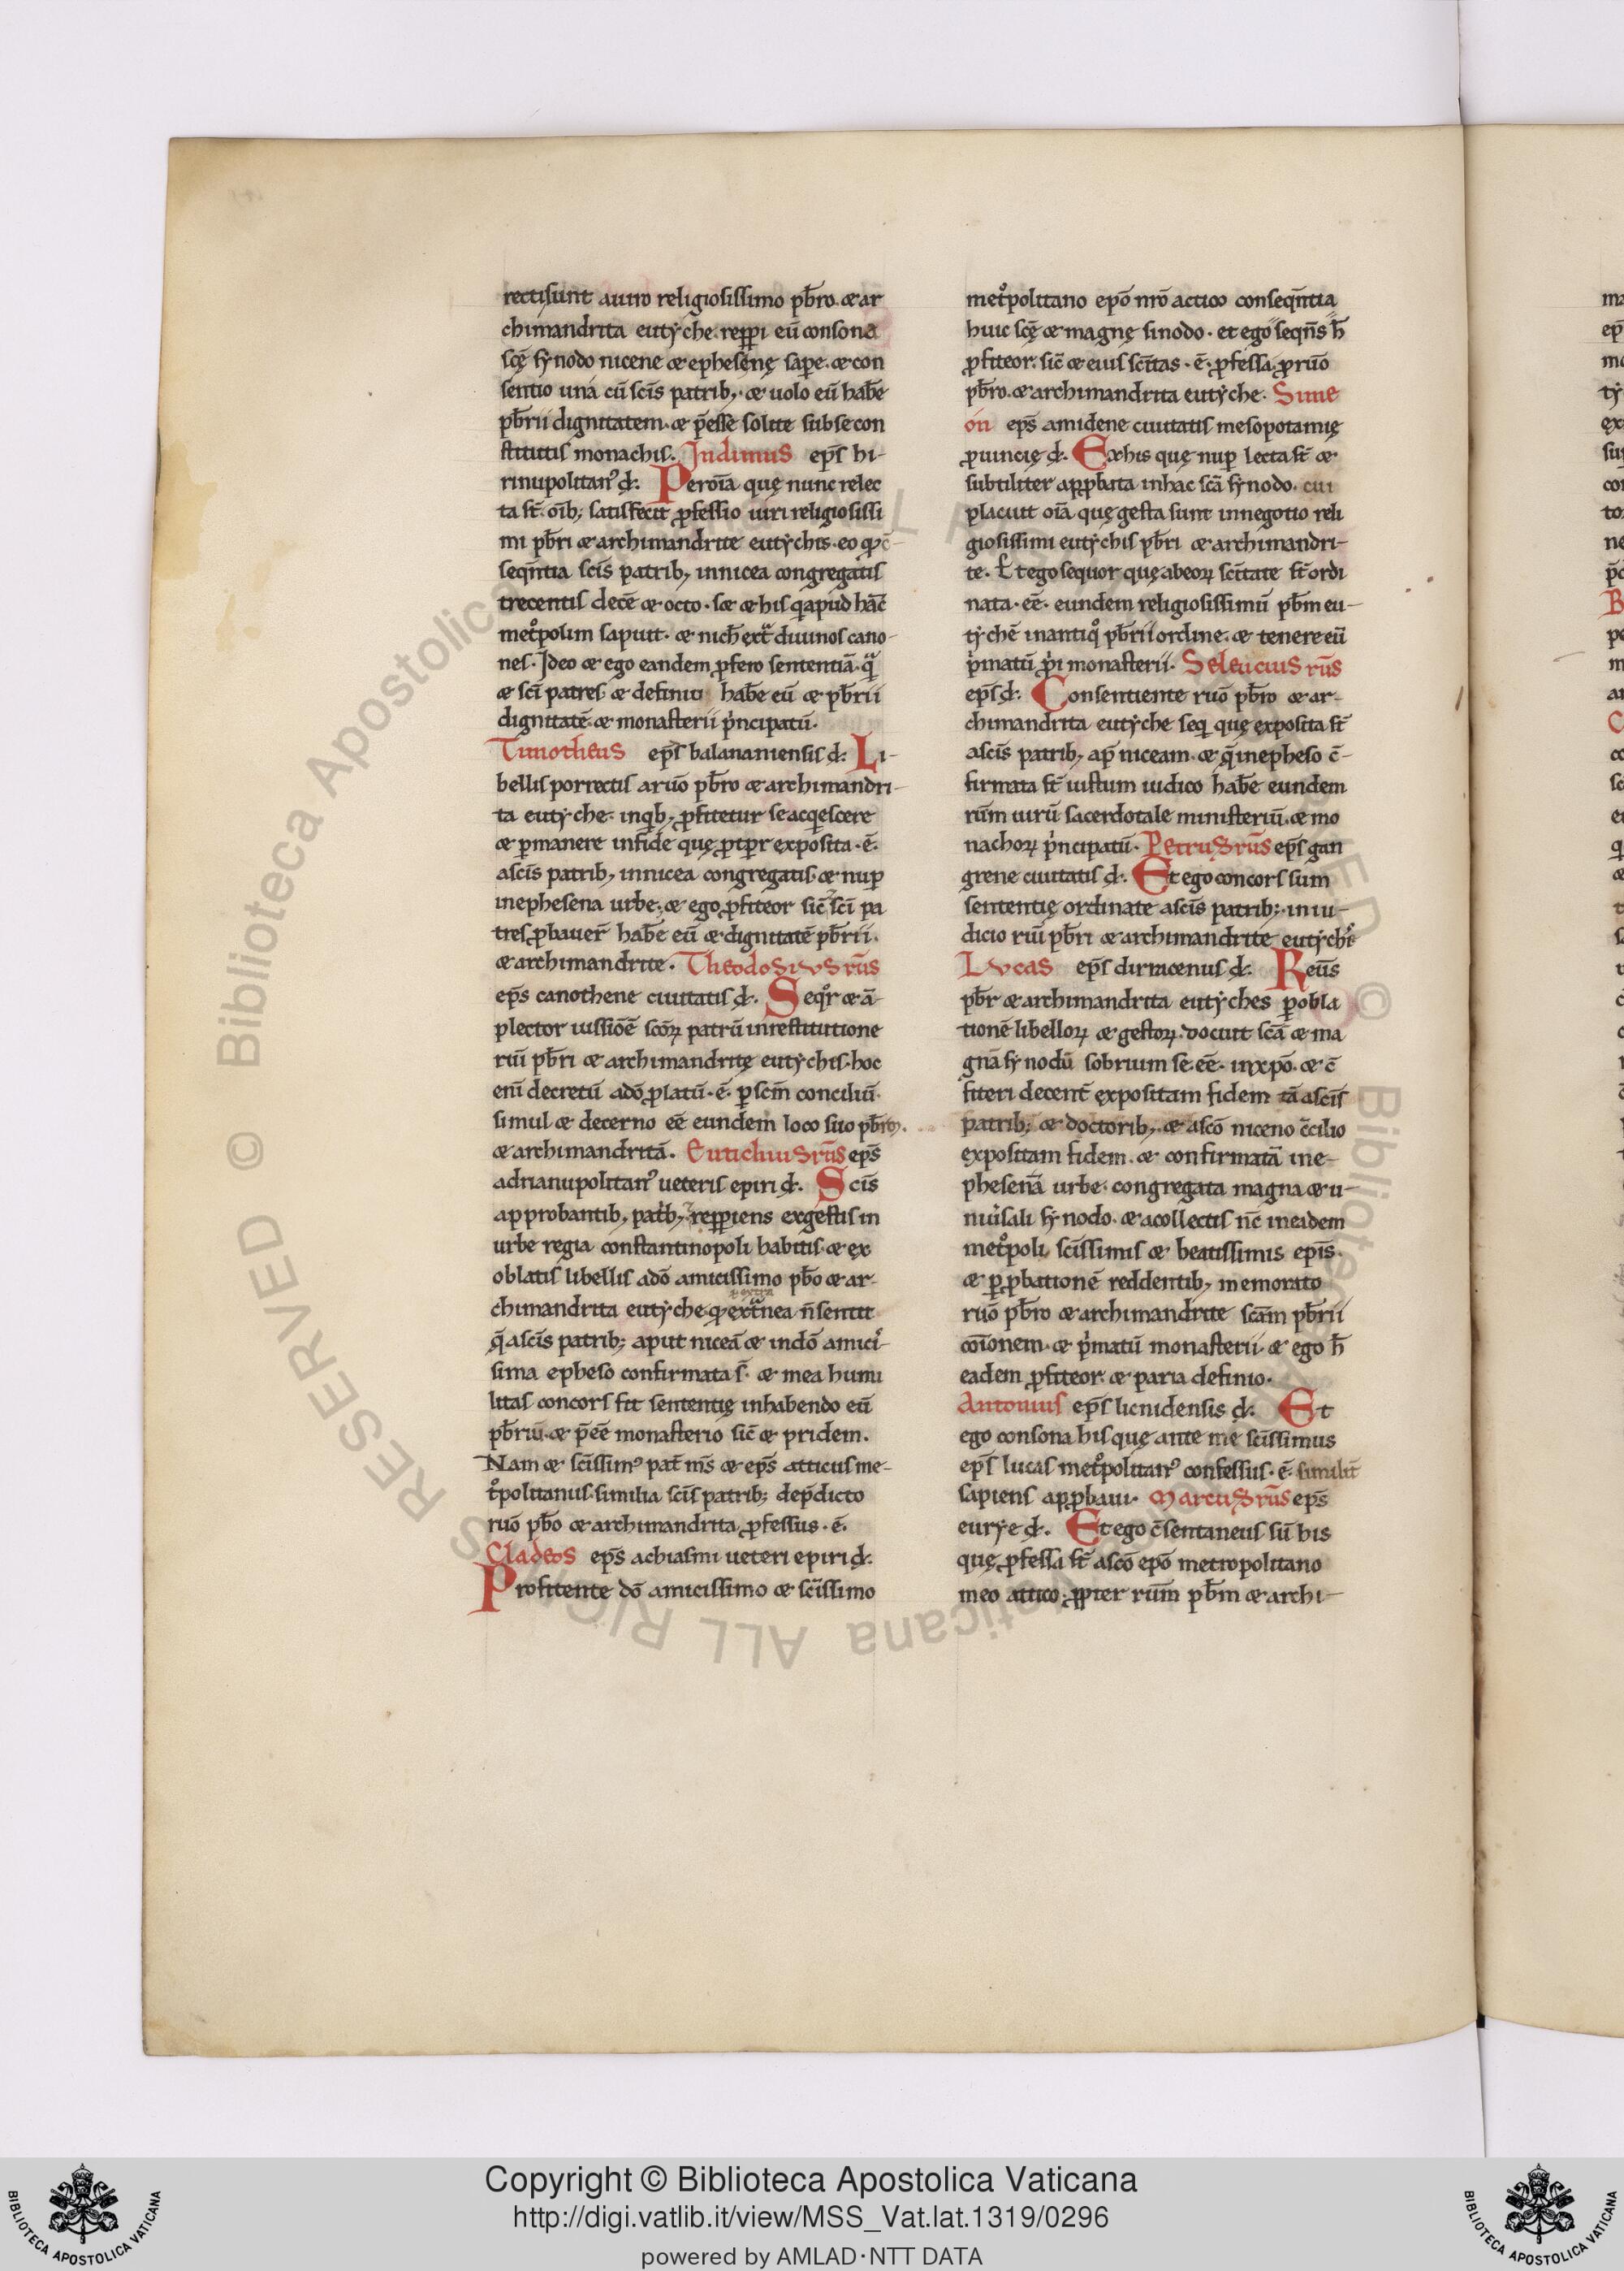 rectisunt auiro religiosissimo pb̄ro. æ ar
chimandrita eutẏche. repp̱i eū consona
scę̄ sẏnodo nicene æ ephesenę sape. æ con
sentio una cū scīs patrib; æ uolo eū hab̄e
pb̄rii dignitatem. æ p̄esse solite sub se con
stitutis monachis. Judimus ep̄s hi-
rinupolitan᷒ đ. Per oīa quę nunc relec
ta st̄. oīb; satisfecit ꝓfessio uiri religiosissi
mi pb̄ri æ archimandrite eutẏchis. eo ꝙ c̄-
seqn̄tia scīs patrib; innicea congregatis
trecentis decē æ octo. sæ æ his q apud hāc
metͦpolim saputt. æ nich̄ extͣ diuinos cano-
nes. Ideo æ ego eandem ꝓfero sententiā. qͣ
æ scī patres æ definiti hab̄e eū æ pb̄rii
dignitatē æ monasterii pͥncipatū.
Timotheus ep̄s balananiensis đ. Li-
bellis porrectis a ruō pb̄ro æ archimandri-
ta eutẏche. inqͥb; ꝓfitetur se acqͥescere
æ ꝑmanere infide quę ꝓtꝑr exposita. ē.
a scīs patrib; innicea congregatis. æ nuꝑ
inephesena urbe; æ ego ꝓfiteor sic̄ scī pa
tres ꝓbauer̄ hab̄e eū æ dignitatē pb̄rii.
æ archimandrite. Theodosivs rūs
ep̄s canothene ciuitatis đ. Seqͦr æ ā-
plector iussiōē scōꝝ patrū inrestitutione
riū pb̄ri æ archimandritę eutẏchis. hoc
eni̅ decretū adō ꝓlatū. ē. ꝑ scm̄ conciliū.
simul æ decerno eē eundem loco suo pb̄rm̄.
æ archimandritā. Eutichius rūs ep̄s
adrianupolitan᷒ ueteris epiri đ. Scīs
approbantib; patb; repꝑiens exgestis in
urbe regia constantinopoli habitis. æ ex
oblatis libellis adō amicissimo pb̄o æ ar-
chimandrita eutẏche ꝙ extͣnea n̄ sentit
q̄ a scīs patrib; aput niceā æ indō amicͥ-
sima epheso confirmata s̄. æ mea humi
litas concors fit sententię inhabendo eū
pb̄riū. æ p̄eē monasterio sic̄ æ pridem.
Nam æ scīssim᷒ pat̄ m̄s æ ep̄s atticus me-
tͦpolitanus. similia scīs patrib; dep̄dicto
ruō pb̄o æ archimandrita ꝓfessus. ē.
Cladeos ep̄s achiasmi ueteri epiri đ.
Profitente dō amicissimo æ scīssimo
metͦpolitano epō nrō actico conseqn̄tia
huic scę̄ æ magnę sinodo. et ego seqn̄s h̄
ꝓfiteor. sic̄ æ eius scīitas. ē. ꝓfessa. ꝓ ruō
pb̄ro. æ archimandrita eutẏche. Sime
on ep̄s amidene ciuitatis mesopotamię
ꝓuincię đ. Ex his quę nuꝑ lecta st̄ æ
subtiliter apꝓbata inhac scā sẏnodo. cui
placuit oīa quę gesta sunt innegotio reli
giosissimi eutẏchis pb̄ri æ archimandri-
te. Et ego sequor quę abeoꝝ scīitate st̄ ordi
nata. eē. eundem religiosissimū pb̄m eu-
tẏchē inantiqͦ pb̄rii ordine. æ tenere eū
pͥmatū pͥi monasterii. Seleucius rūs
ep̄s đ. Consentiente ruō pb̄ro æ ar-
chimandrita eutẏche seqͥ quę exposita st̄
a scīs patrib; ap̄ niceam. æ q̄ inepheso c̄-
firmata st̄ iustum iudico hab̄e eundem
rūm uirū sacerdotale ministeriū. æ mo
nachoꝝ pͥncipatū. Petrus rūs ep̄s gan
grene ciuitatis đ. Et ego concors sum
sententię ordinate a scīs patrib; in iu-
dicio riū pb̄ri æ archimandrite eutẏchͥs
Lvcas ep̄s dirracenus đ. Reūs
pb̄r æ archimandrita eutẏches ꝑ obla
tionē libelloꝝ æ gestoꝝ. docuit scā æ ma
gnā sẏnodū sobrium se. eē. inxpō. æ c̄
fiteri decent̄ expositam fidem tā a scīs
patrib; æ doctorib; æ a scō niceno c̄cilio
expositam fidem. æ confirmatā ine-
phesenā urbe. congregata magna æ u-
niuͥsali sẏnodo. æ a collectis nc̄ ineadem
metͦpoli, scīssimis æ beatissimis epīs.
æ ꝑ ꝓbationē reddentib; memorato
ruō pb̄ro æ archimandrite scām pb̄rii
coīonem. æ pͥmatū monasterii. æ ego h̄
eadem ꝓfiteor æ paria definio.
Antonius ep̄s licnidensis đ. Et
ego consona his quę ante me scīssimus
ep̄s lucas metͦpolitan᷒ confessus. ē. similit̄
sapiens apꝓbaui. Marcus rūs ep̄s
eurye đ. Et ego c̄sentaneus sū his
quę ꝓfessa st̄ a scō epō metropolitano
meo attico. ꝓpter rūm pb̄m æ archi-
Copyright © Biblioteca Apostolica Vaticana
http://digi.vatlib.it/view/MSS_Vat.lat.1319/0296
powered by AMLAD·NTT DATA
BIBLIOTECA APOSTOLICA VATICANA
BIBLIOTECA APOSTOLICA VATICANA